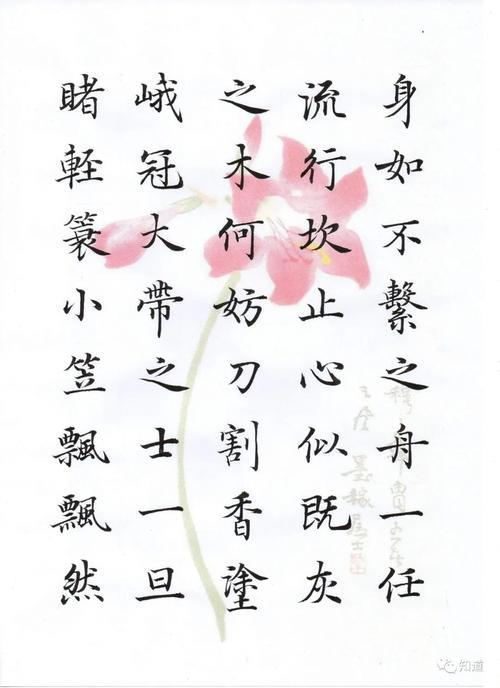 身如不繫之舟一任
流行坎止心似既灰
之木何妨刀割香塗
峨冠大帶之士一旦
睹輕簑小笠飄飄然
知道